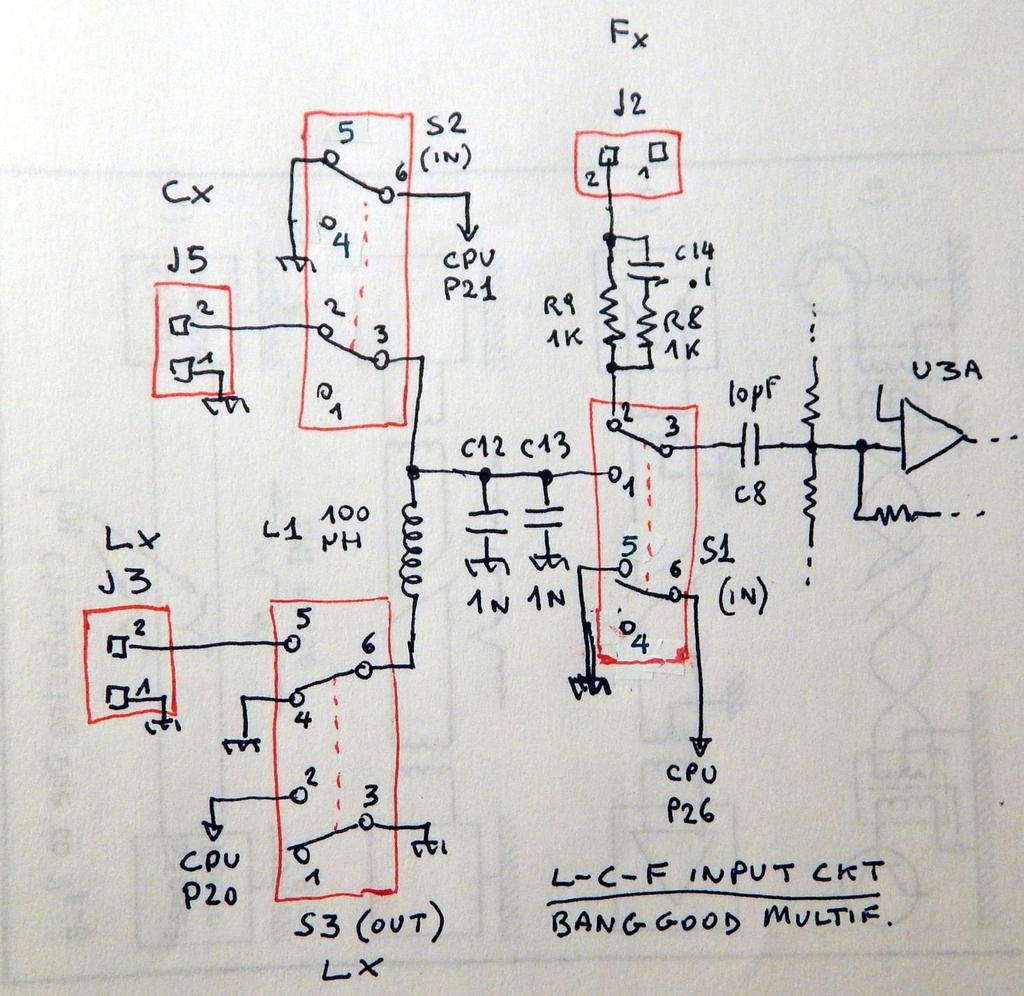 Fx
J2
2 1
S2
(IN)
5
6
4
2
3
1
CPU
P21
Cx
J5
2
1
C14
.1
R9
1K
R8
1K
2
3
1
5
6
4
S1
(IN)
CPU
P26
10pF
C8
U3A
C12 C13
1N 1N
L1 100
µH
Lx
J3
2
1
5
6
4
2
3
1
CPU
P20
S3 (OUT)
LX
L-C-F INPUT CKT
BANGGOOD MULTIF.